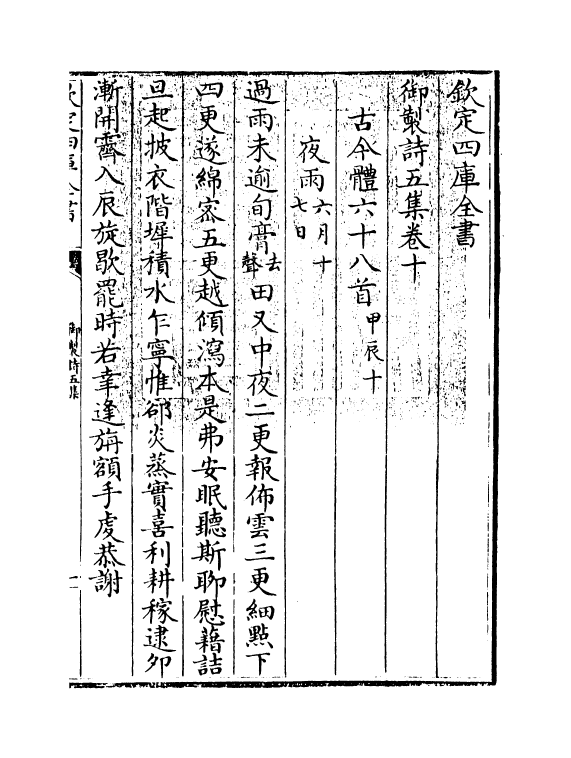 欽定四庫全書
御製詩五集卷十
古今體六十八首甲辰十
夜雨六月十七日
過雨未逾旬膏去聲田又中夜二更報佈雲三更細點下
四更遂綿密五更越傾瀉本是弗安眠聽斯聊慰藉詰
旦起披衣階墀積水乍寧惟郤炎蒸實喜利耕稼逮夘
漸開霽入辰旋歇罷時若幸逢旃額手虔恭謝
欽定四庫全書
御製詩五集
一